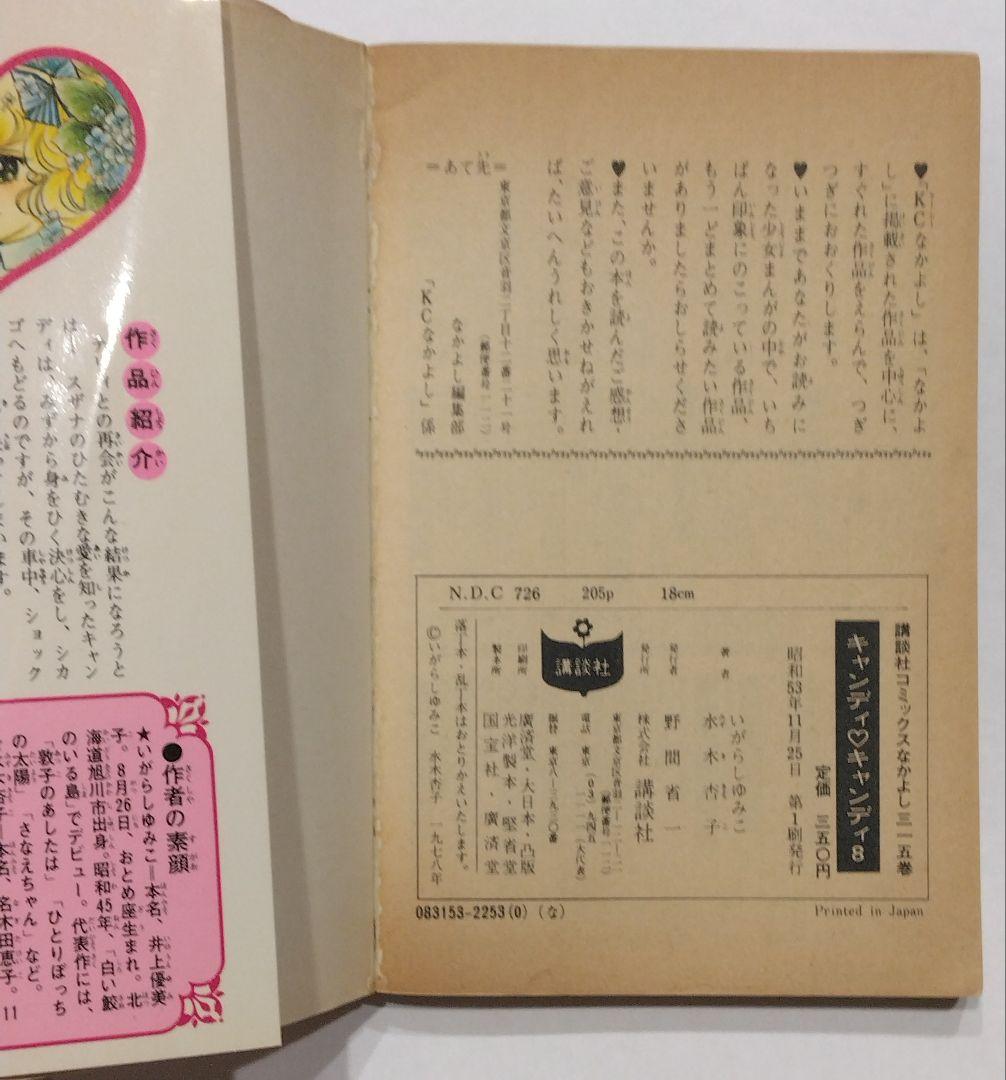 ♥「KCなかよし」は、「なかよ
し」に掲載された作品を中心に、
すぐれた作品をえらんで、つぎ
つぎにおおくりします。
♥いままであなたがお読みに
なった少女まんがの中で、いち
ばん印象にのこっている作品、
もう一どまとめて読みたい作品
がありましたらおしらせくださ
いませんか。
♥また、この本を読んだご感想・
ご意見などもおきかせねがえれ
ば、たいへんうれしく思います。
＝あて先＝
東京都文京区音羽二丁目十二番二十一号
(郵便番号一一二)
なかよし編集部
「KCなかよし」係
N.D.C 726 205p 18cm
講談社コミックスなかよし 三一五巻
キャンディ♡キャンディ8
定価 三五〇円
昭和53年11月25日 第1刷発行
著者 いがらしゆみこ
水木杏子
発行者 野間省一
発行所 株式会社 講談社
東京都文京区音羽二―一二―二一
(郵便番号一一二)
電話 東京(03)九四五―一一一一(大代表)
振替 東京八―三九三〇番
講談社
印刷所 廣済堂・大日本・凸版
製本所 光洋製本・堅省堂
国宝社・廣済堂
落丁本・乱丁本はおとりかえいたします。
©いがらしゆみこ 水木杏子 一九七八年
083153-2253(0)(な)
Printed in Japan
作品紹介
との再会がこんな結果になろうと
は―。スザナのひたむきな愛を知ったキャン
ディは、みずから身をひく決心をし、シカ
ゴへもどるのですが、その車中、ショック
●作者の素顔
★いがらしゆみこ＝本名、井上優美
子。8月26日、おとめ座生まれ。北
海道旭川市出身。昭和45年、「白い鮫
のいる島」でデビュー。代表作には、
「敦子のあしたは」「ひとりぼっち
の太陽」「さなえちゃん」など。
本名、名木田恵子。11